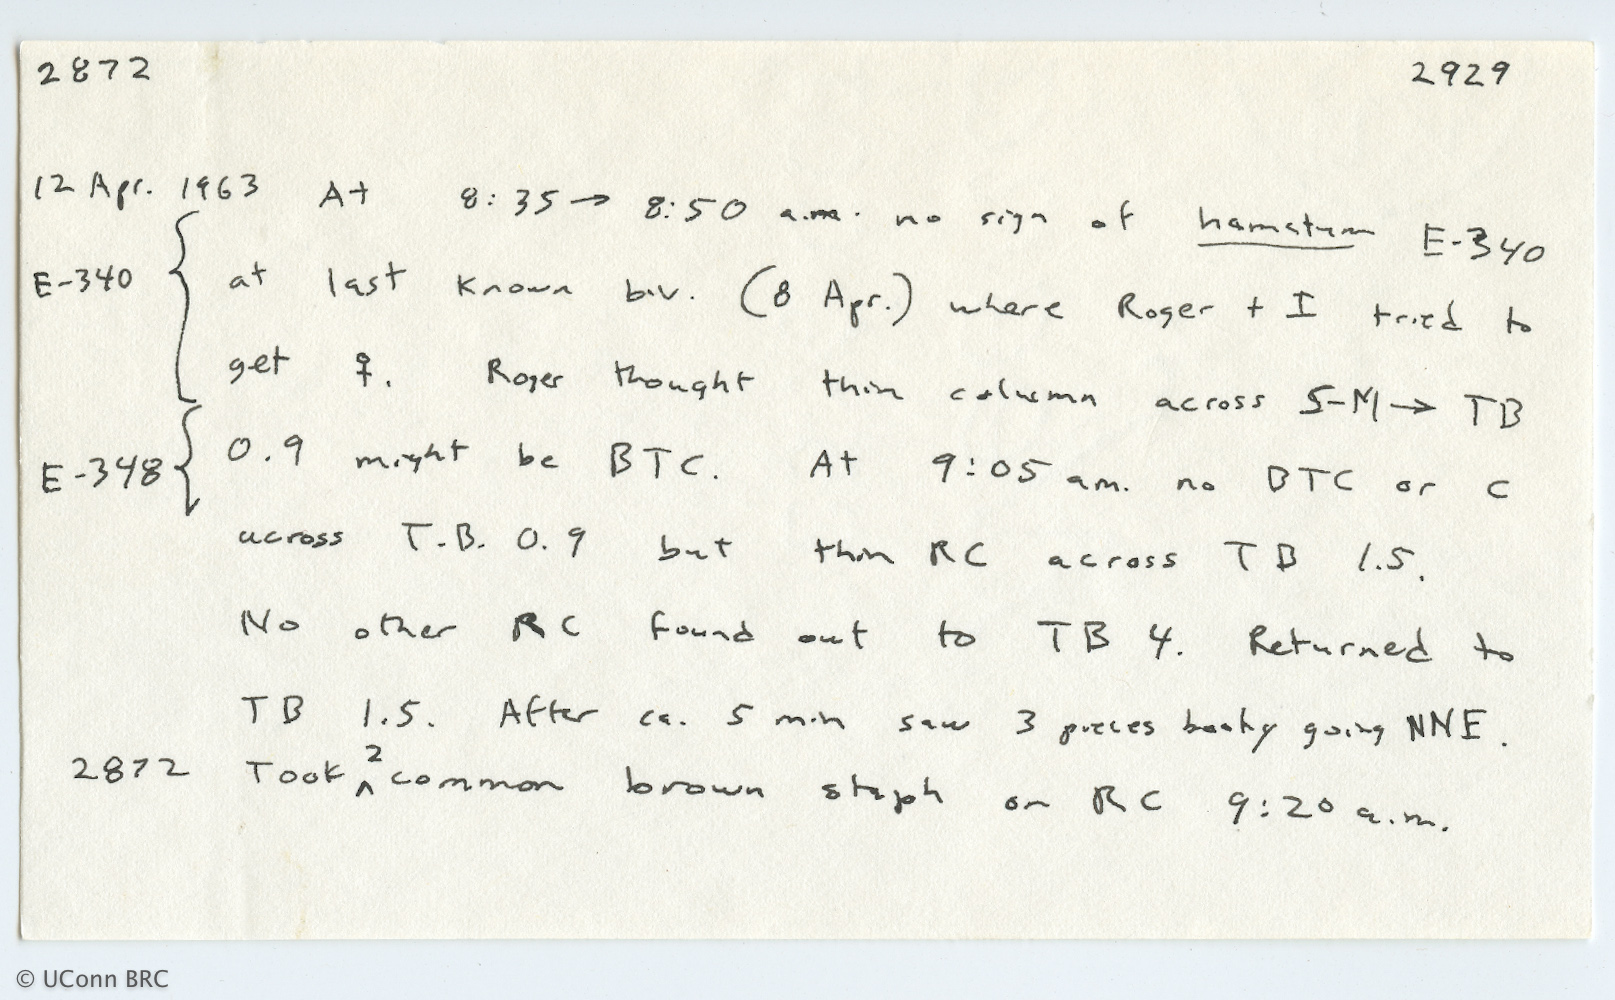 2872 2929
12 Apr. 1963 At 8:35 → 8:50 a.m. no sign of hamatum E-340
E-340 at last known biv. (8 Apr.) where Roger + I tried to
get ♀. Roger thought thin column across S-M → TB
E-348 0.9 might be BTC. At 9:05 am. no BTC or C
across T.B. 0.9 but thin RC across TB 1.5.
No other RC found out to TB 4. Returned to
TB 1.5. After ca. 5 min saw 3 pieces booty going NNE.
2872 Took ^2 common brown staph on RC 9:20 a.m.
© UConn BRC